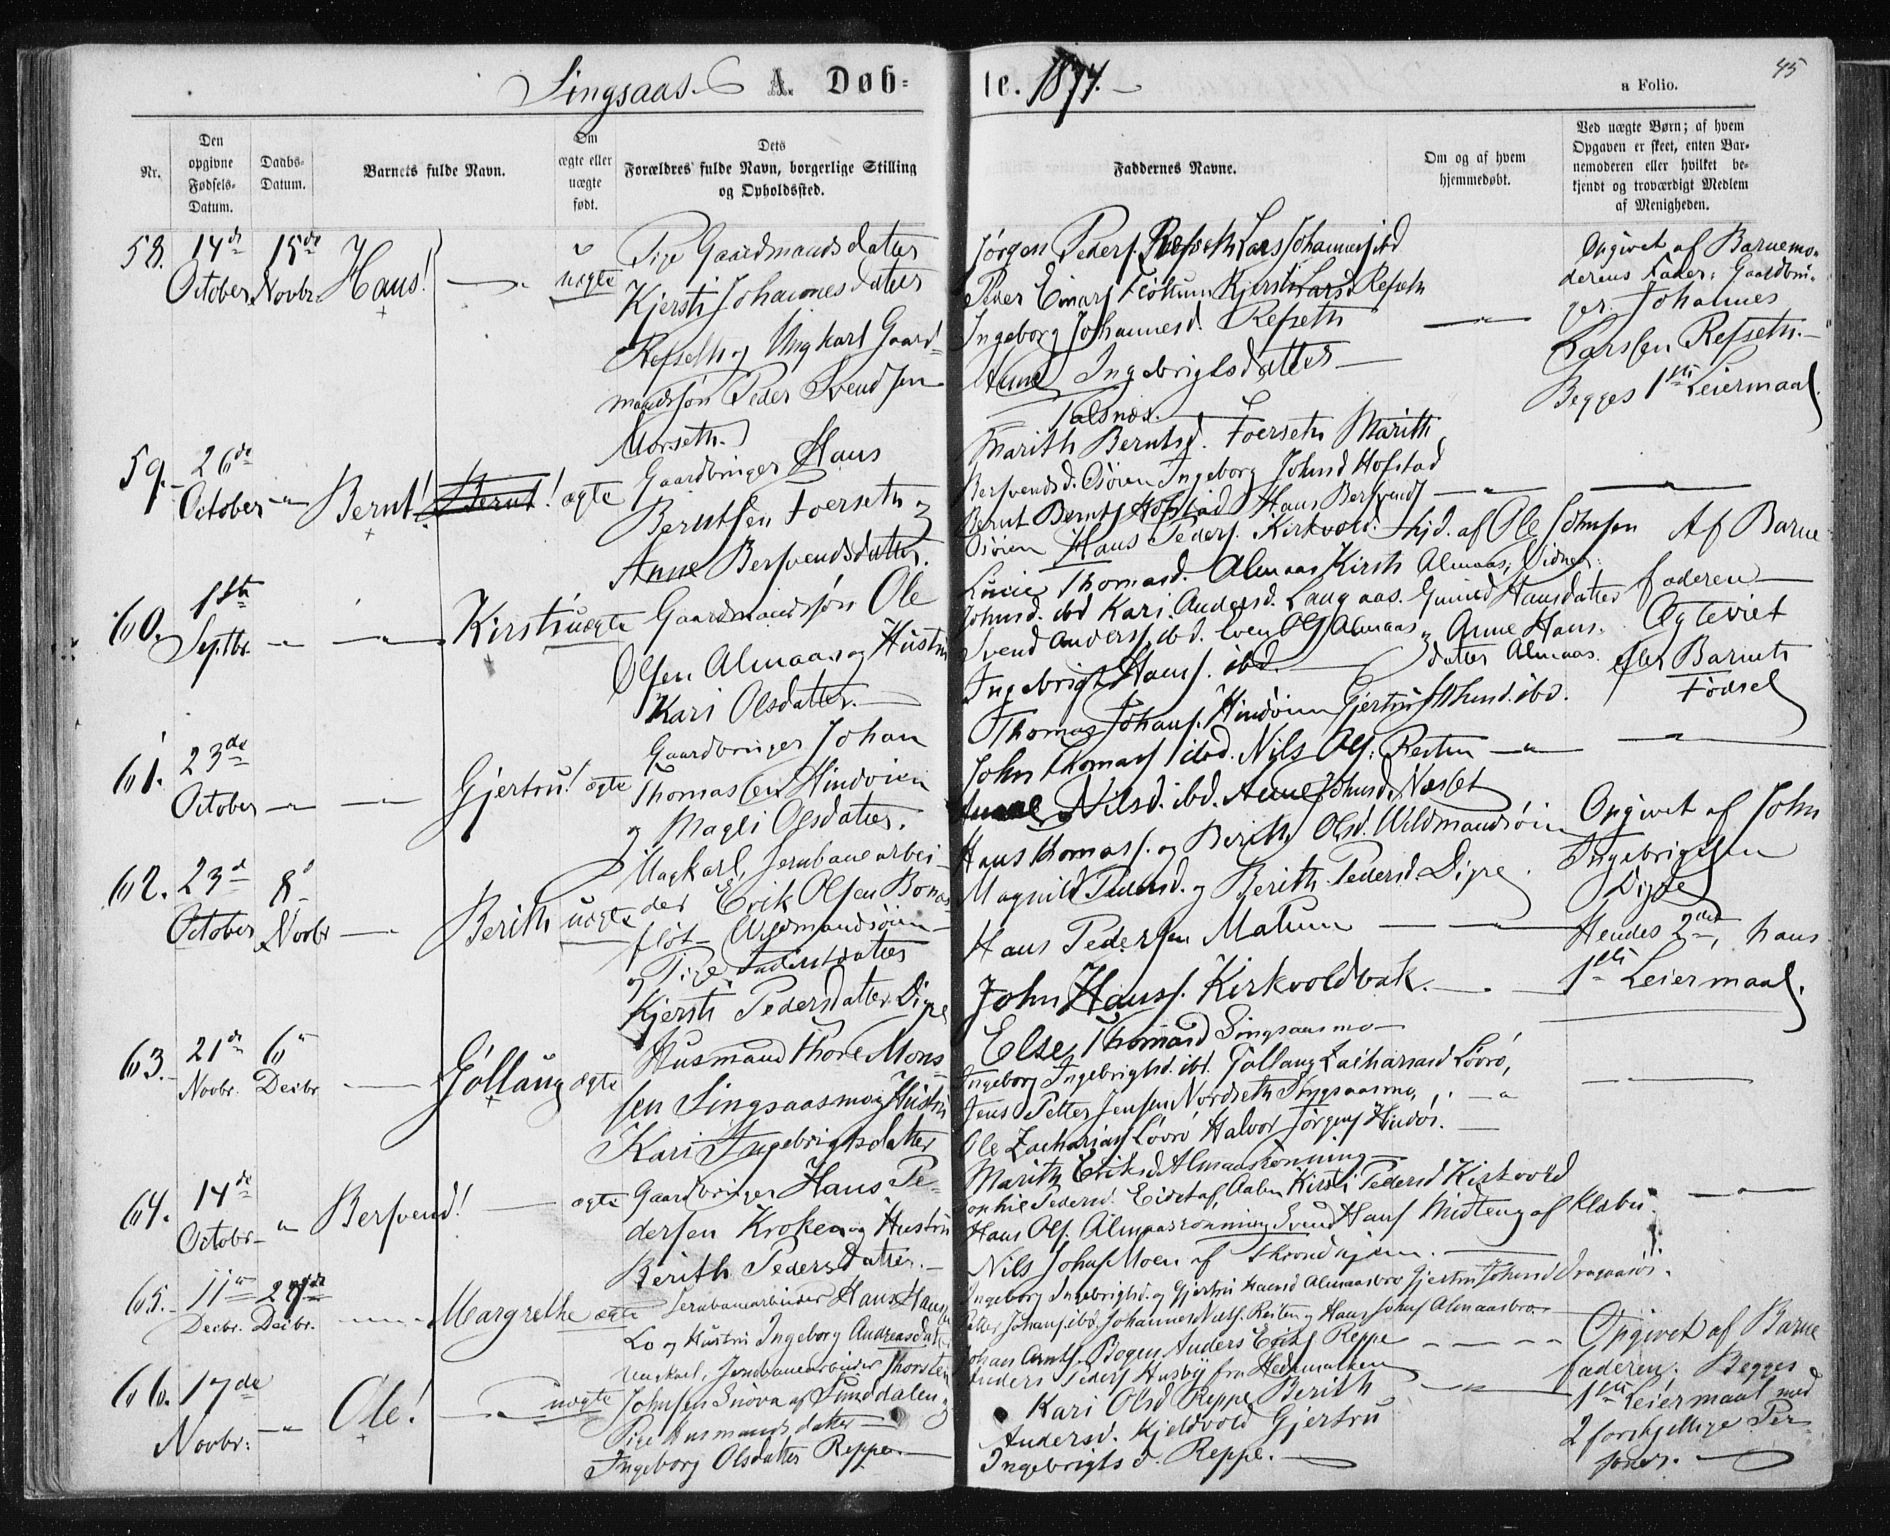 Singsaas. A. Døb-
te. 1874.
45
a Folio.
Nr.
Den opgivne Fødsels-Datum.
Daabs-Datum.
Barnets fulde Navn.
Om ægte eller uægte født.
Dets Forældres fulde Navn, borgerlige Stilling og Opholdssted.
Faddernes Navne.
Om og af hvem hjemmedøbt.
Ved uægte Børn; af hvem Opgaven er skeet, enten Barnemoderen eller hvilket bekjendt og troværdigt Medlem af Menigheden.
58. 14de October 15de Novbr. Hans! uægte
Pige Gaardmandsdatter
Kjersti Johannesdatter
Refseth og Ungkarl Gaard-
mandssøn Peder Svendsen
Morseth.
Jørgen Peders. Refseth Lars Johanness ibd
Peder Einars Flotum Kjersti Larsd Refseth
Ingeborg Johannesd. Refseth
Anne Ingebrigtsdatter
Talsnes.
Opgivet af Barnemo-
derens Fader: Gaardbru-
ger Johannes
Larssen Refseth.
Begges 1ste Leiermaal.
59. 26de October Bernt! Bernt! ægte
Gaardbruger Hans
Berntsen Foerseth og
Anne Bersvendsdatter.
Marith Berntsd. Foerseth Marith
Bersvendsd. Osøien Ingeborg Johnsd Hofstad
Bernt Bernts Hofstad Hans Bersvends
Osøien Hans Peders. Kirkvold.
60. 1ste Septbr. Kirsti uægte
Gaardmandssøn Ole
Olsen Almaas og Hustru
Kari Olsdatter.
Lucie Thomasd. Almaas Kirsti
Johnsd. ibd Kari Andersd. Langaas.
Svend Anders. ibd. Even Ols Almaas
Ingebrigt Hans. ibd.
Hjd. af Ole Johnsen
Almaas, Vidner:
Gunild Hansdatter
Anne Hans-
datter Almaas.
Af Barne-
faderen
Ægteviet
efter Barnets
Fødsel
61. 23de October Gjertru! ægte
Gaardbruger Johan
Thomassen Hindøien
og Magli Olsdatter.
Thomas Johans. Hindøien Gjertru Johnsd. ibd.
John Thomass ibd. Nils Ols. Resten
Nilsd. ibd. Anne Johnsd. Næsset
62. 23de October 8de Novbr Berith uægte
Ungkarl, Jernbanearbei-
der Erik Olsen Bonas-
flot Wildmandsøien
og Pige
Kjersti Pedersdatter Digre
Hans Thomass. og Berith Olsd. Wildmandsøien
Magnild Pedersd. og Berith Pedersd. Digre.
Hans Pedersen Malum
John Hans. Kirkvoldvak.
Opgivet af John
Ingebrigtsen
Digre
Hendes 2det, hans
1ste Leiermaal.
63. 21de Novbr. 6te Decbr Gøllaug ægte
Husmand Thore Mons-
sen Singsaasmo og Hustru
Kari Ingebrigtsdatter
Else Thomasd Singsaasmo
Ingeborg Ingebrigtsd. ibd. Gøllaug Zachariasd Løvrø,
Jens Petter Jensen Nordseth Singsaasmo,
Ole Zacharias Løvrø Halvor Jørgens Hindøi.
64. 14de Octobr. Bersvend! ægte
Gaardbruger Hans Pe-
dersen Kroken og Hustru
Berith Pedersdatter.
Marith Eriksd Almaasrønning
Sophie Pedersd. Eidet af Aalen Kirsti Pedersd Kirkvold
Hans Ols. Almaasrønning Svend Hans Midteng af Klæbu.
Nils Johs Moen af
65. 11te Decbr. 27de Decbr. Margrethe ægte
Jernbanearbeider Hans Hansen
Lo og Hustru Ingeborg Andreasdatter
Ingeborg Ingebrigtsd. og Gjertru Haensd Almaasbro Gjertru Johnsd
Petter Johans. ibd. Johannes Næss. Resten og Hans Johns Almaasbro
66. 17de Novbr: Ole! uægte
Ungkarl, Jernbanearbeider Thorsten
Johnsen Snøva af Sunddalen og
Pige Husmandsdatter
Ingeborg Olsdatter Reppe.
Johan Arnts. Bogen Anders Eriks Reppe
Anders Peders Husby fra Hedemarken
Kari Olsd Reppe Berith
Andersd. Kjeldvold Gjertru
Ingebrigtsd. Reppe.
Opgivet af Barne-
faderen; Begges
1ste Leiermaal med
2 forskjellige Per-
soner.